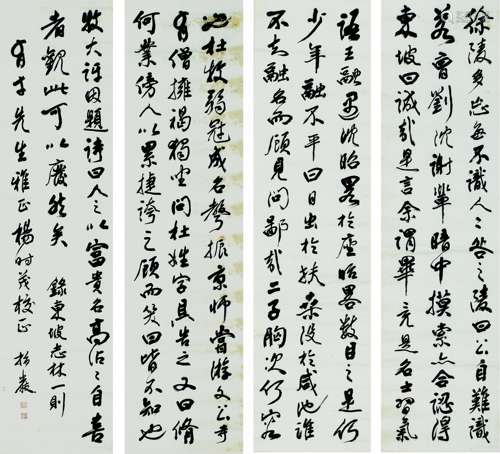 徐陵多忘每不識人人咎之陵曰公自難識
若曹劉沈謝輩暗中摸索亦合認得
東坡曰誠哉是言余謂畢竟是名士習氣
語王融遇沈昭畧於座昭畧數目之是何
少年融不平曰日出於扶桑没於咸池誰
不知融名而顧見問鄙哉二子胸次何窄
杜牧弱冠成名聲振京師當游文公寺
有僧擁褐獨坐問杜姓字具告之又曰脩
何業傍人以累捷誇之顧而笑曰皆不知也
牧大訝因題詩曰人之以富貴名高沾沾自喜
者觀此可以廢然矣 錄東坡志林一則
有 先生雅正 楊時茂校正 松